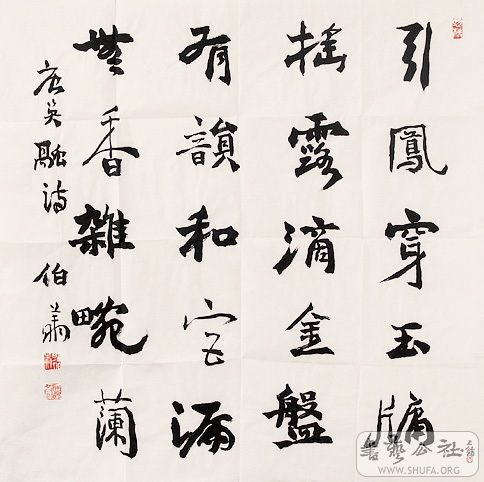 引鳳穿玉牖
搖露滴金盤
有韻和宮漏
無香雜畹蘭
唐吳融詩 伯蕭
書藝公社
WWW.SHUFA.ORG